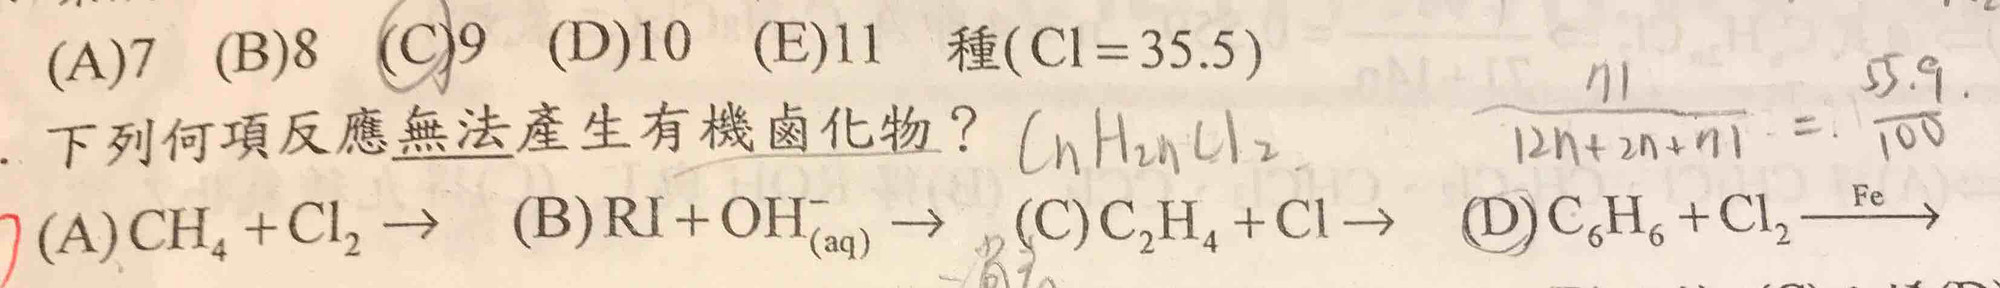 (A)7 (B)8 (C)9 (D)10 (E)11 種(Cl=35.5)
下列何項反應無法產生有機鹵化物? CnH2nCl2 71/(12n+2n+71) = 55.9/100
(A)CH₄+Cl₂→ (B)RI+OH⁻(aq)→ (C)C₂H₄+Cl→ (D)C₆H₆+Cl₂ Fe→